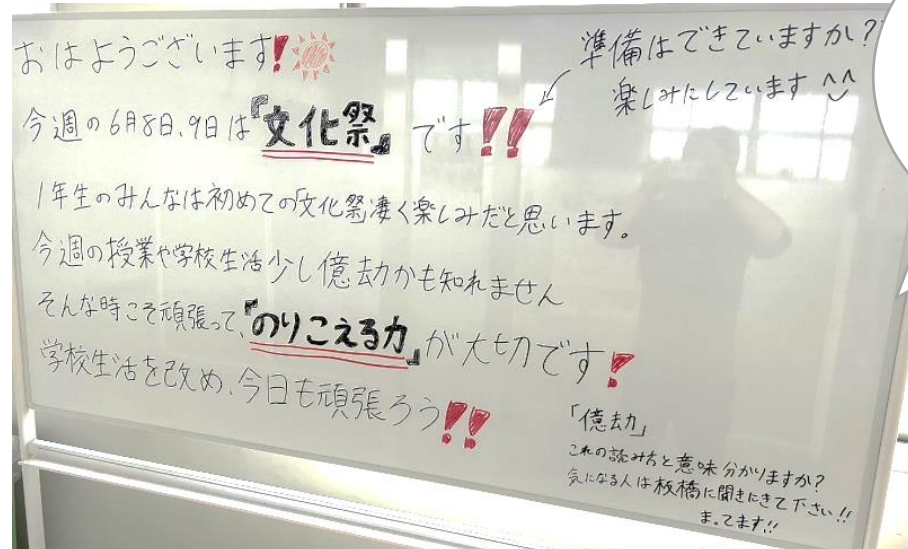 おはようございます!
今週の6月8日、9日は『文化祭』です!!
準備はできていますか?
楽しみにしています ^^
1年生のみんなは初めての「文化祭」凄く楽しみだと思います。
今週の授業や学校生活少し億劫かも知れません
そんな時こそ頑張って、『のりこえる力』が大切です!
学校生活を改め、今日も頑張ろう!!
「億劫」
これの読み方と意味分かりますか?
気になる人は板橋に聞きにきて下さい!!
まってます!!